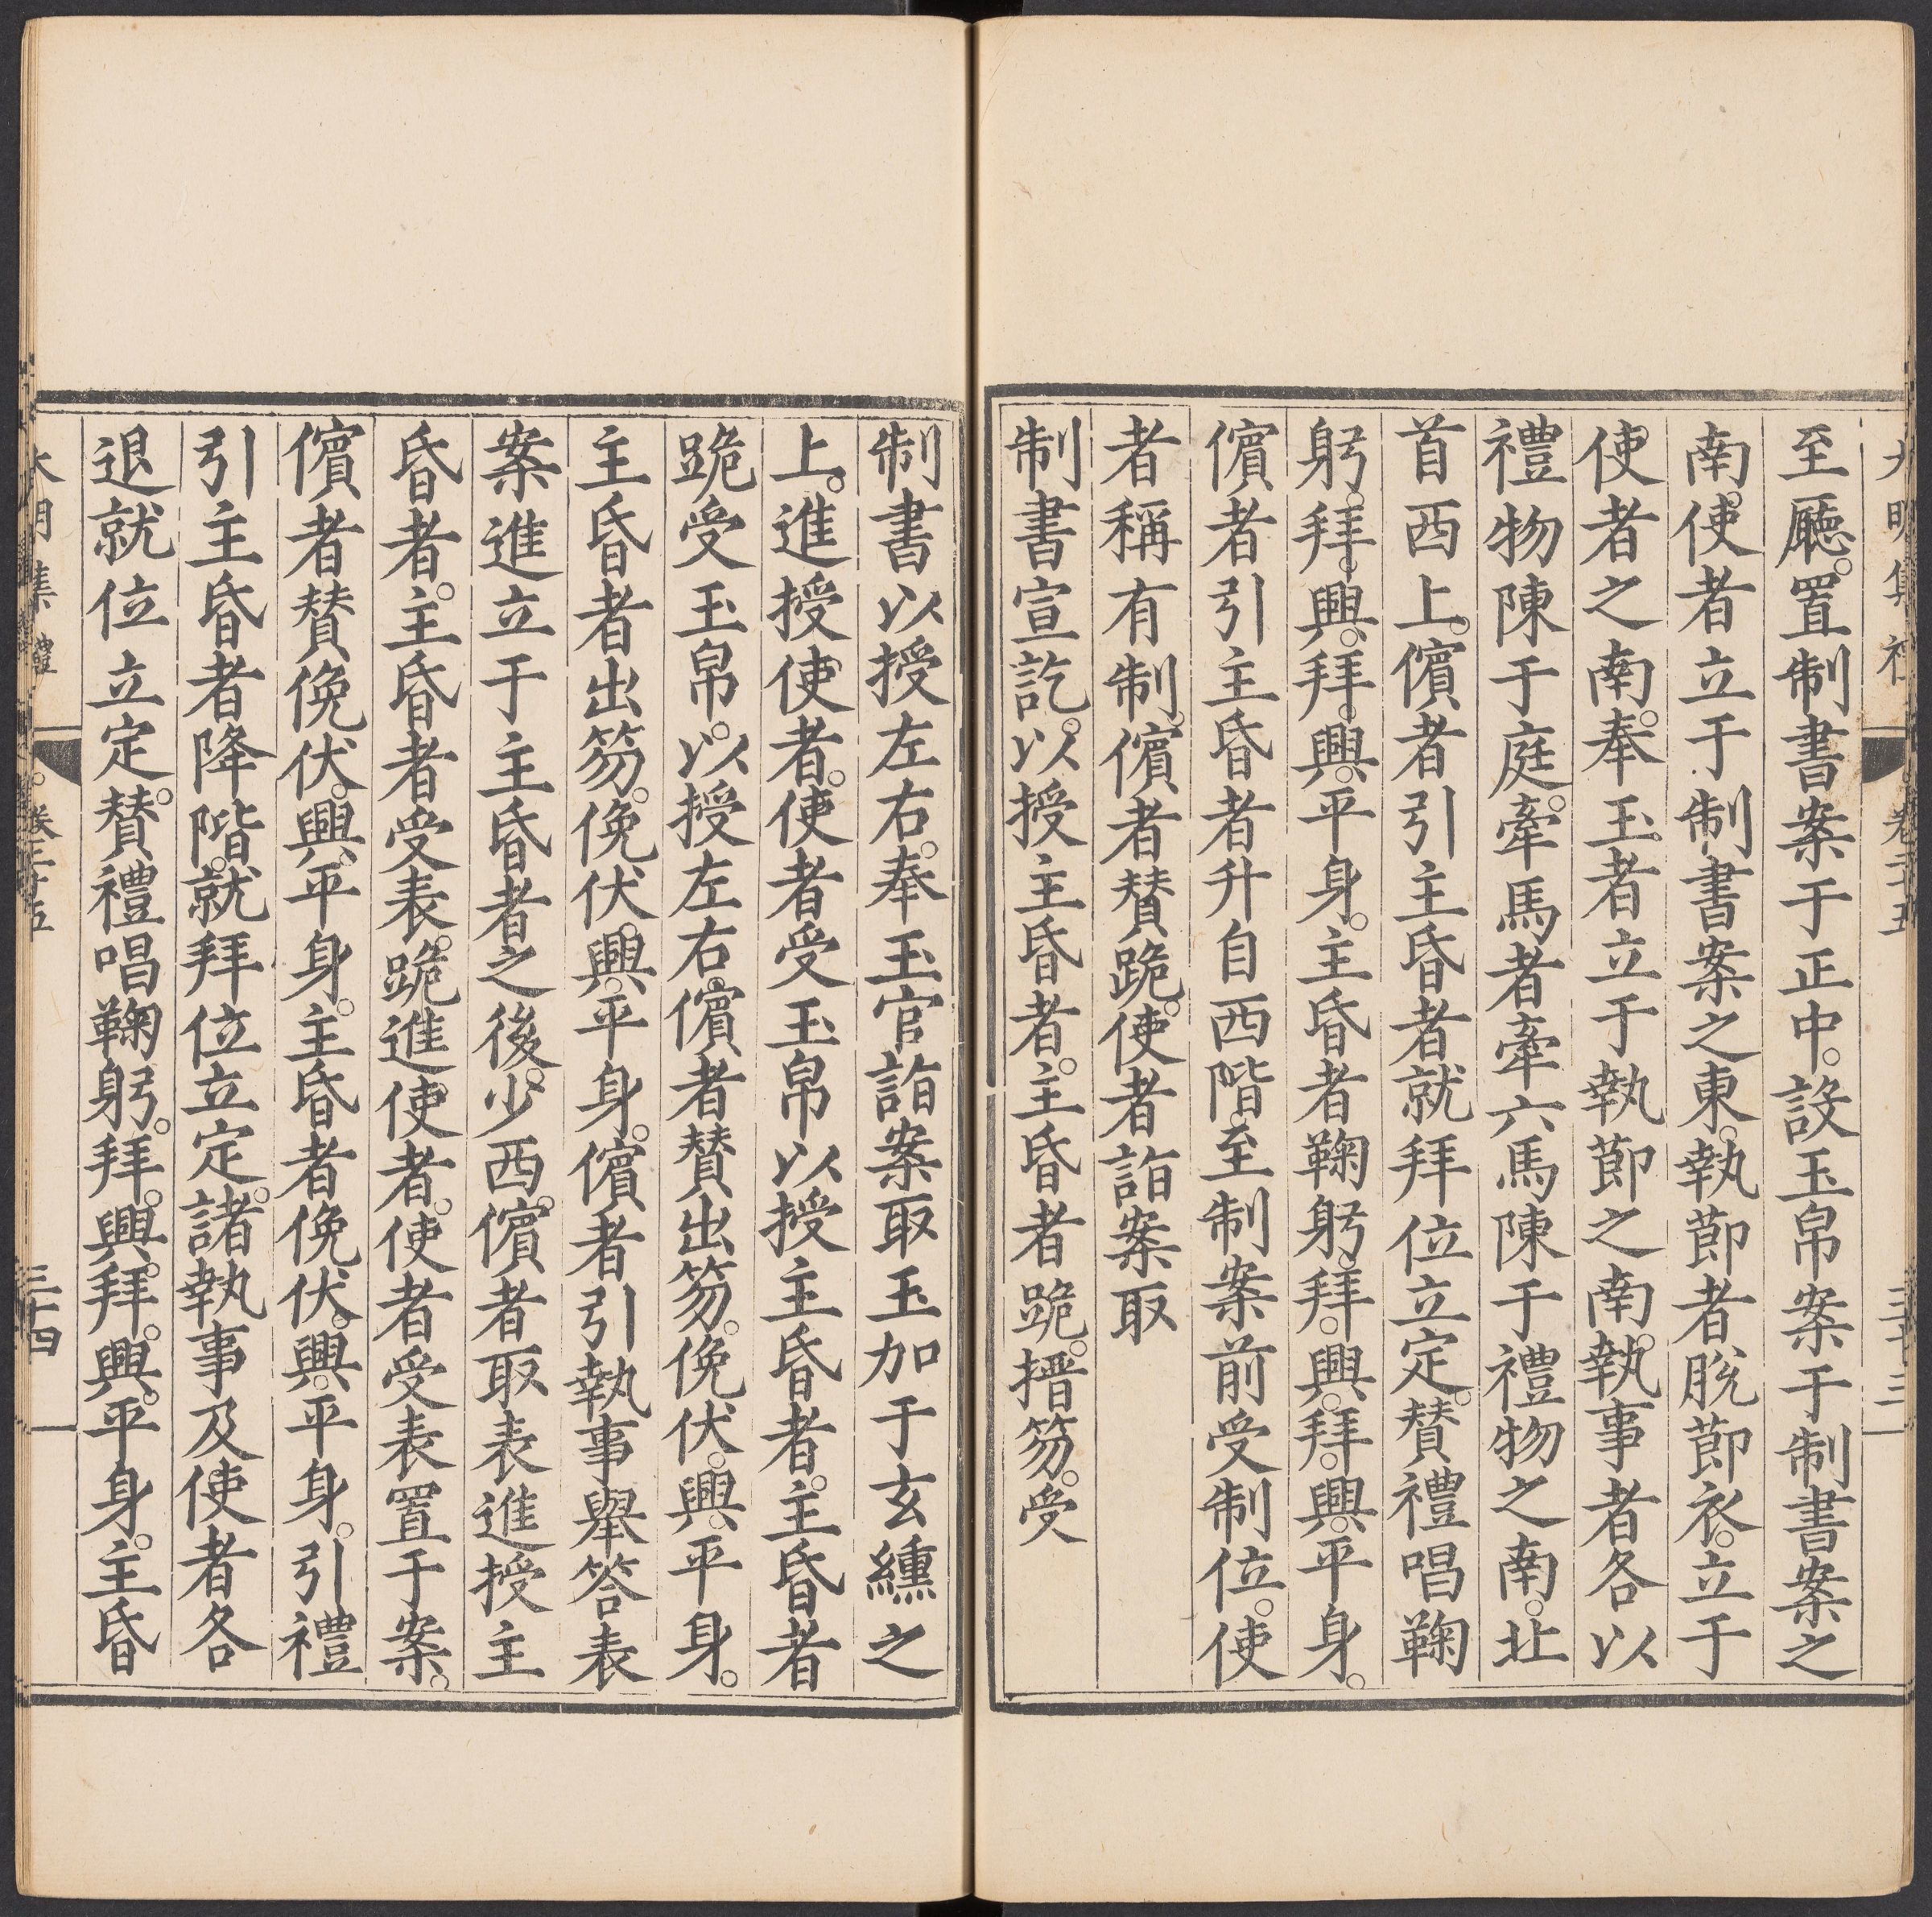 大明集禮 卷二十五 三十三
至廳。置制書案于正中。設玉帛案于制書案之
南。使者立于制書案之東。執節者脫節衣。立于
使者之南。奉玉者立于執節之南。執事者各以
禮物陳于庭。牽馬者牽六馬陳于禮物之南。北
首西上。儐者引主昏者就拜位立定。贊禮唱鞠
躬。拜。興。拜。興。平身。主昏者鞠躬。拜。興。拜。興。平身。
儐者引主昏者升自西階。至制案前受制位。使
者稱有制。儐者贊跪。使者詣案取
制書宣訖。以授主昏者。主昏者跪。搢笏。受
制書以授左右。奉玉官詣案取玉加于玄纁之
上。進授使者。使者受玉帛以授主昏者。主昏者
跪受玉帛。以授左右。儐者贊出笏。俛伏。興。平身。
主昏者出笏。俛伏。興。平身。儐者引執事舉答表
案進立于主昏者之後。少西。儐者取表進授主
昏者。主昏者受表。跪進使者。使者受表置于案。
儐者贊俛伏。興。平身。主昏者俛伏。興。平身。引禮
引主昏者降階。就拜位立定。諸執事及使者各
退就位立定。贊禮唱鞠躬。拜。興。拜。興。平身。主昏
大明集禮 卷二十五 三十四